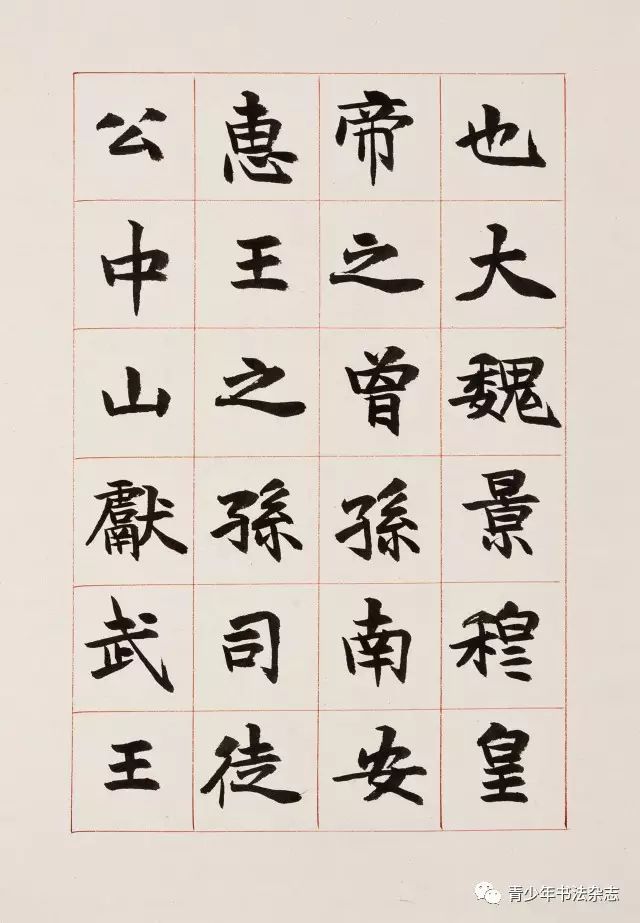 也大魏景穆皇
帝之曾孫南安
惠王之孫司徒
公中山獻武王
青少年书法杂志